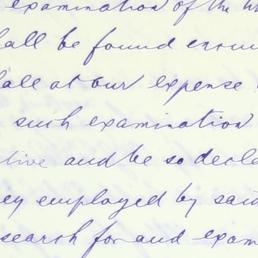 examination of the
all be found
at our expense
such examination
and be so decla
ey employed by said
search for and exam